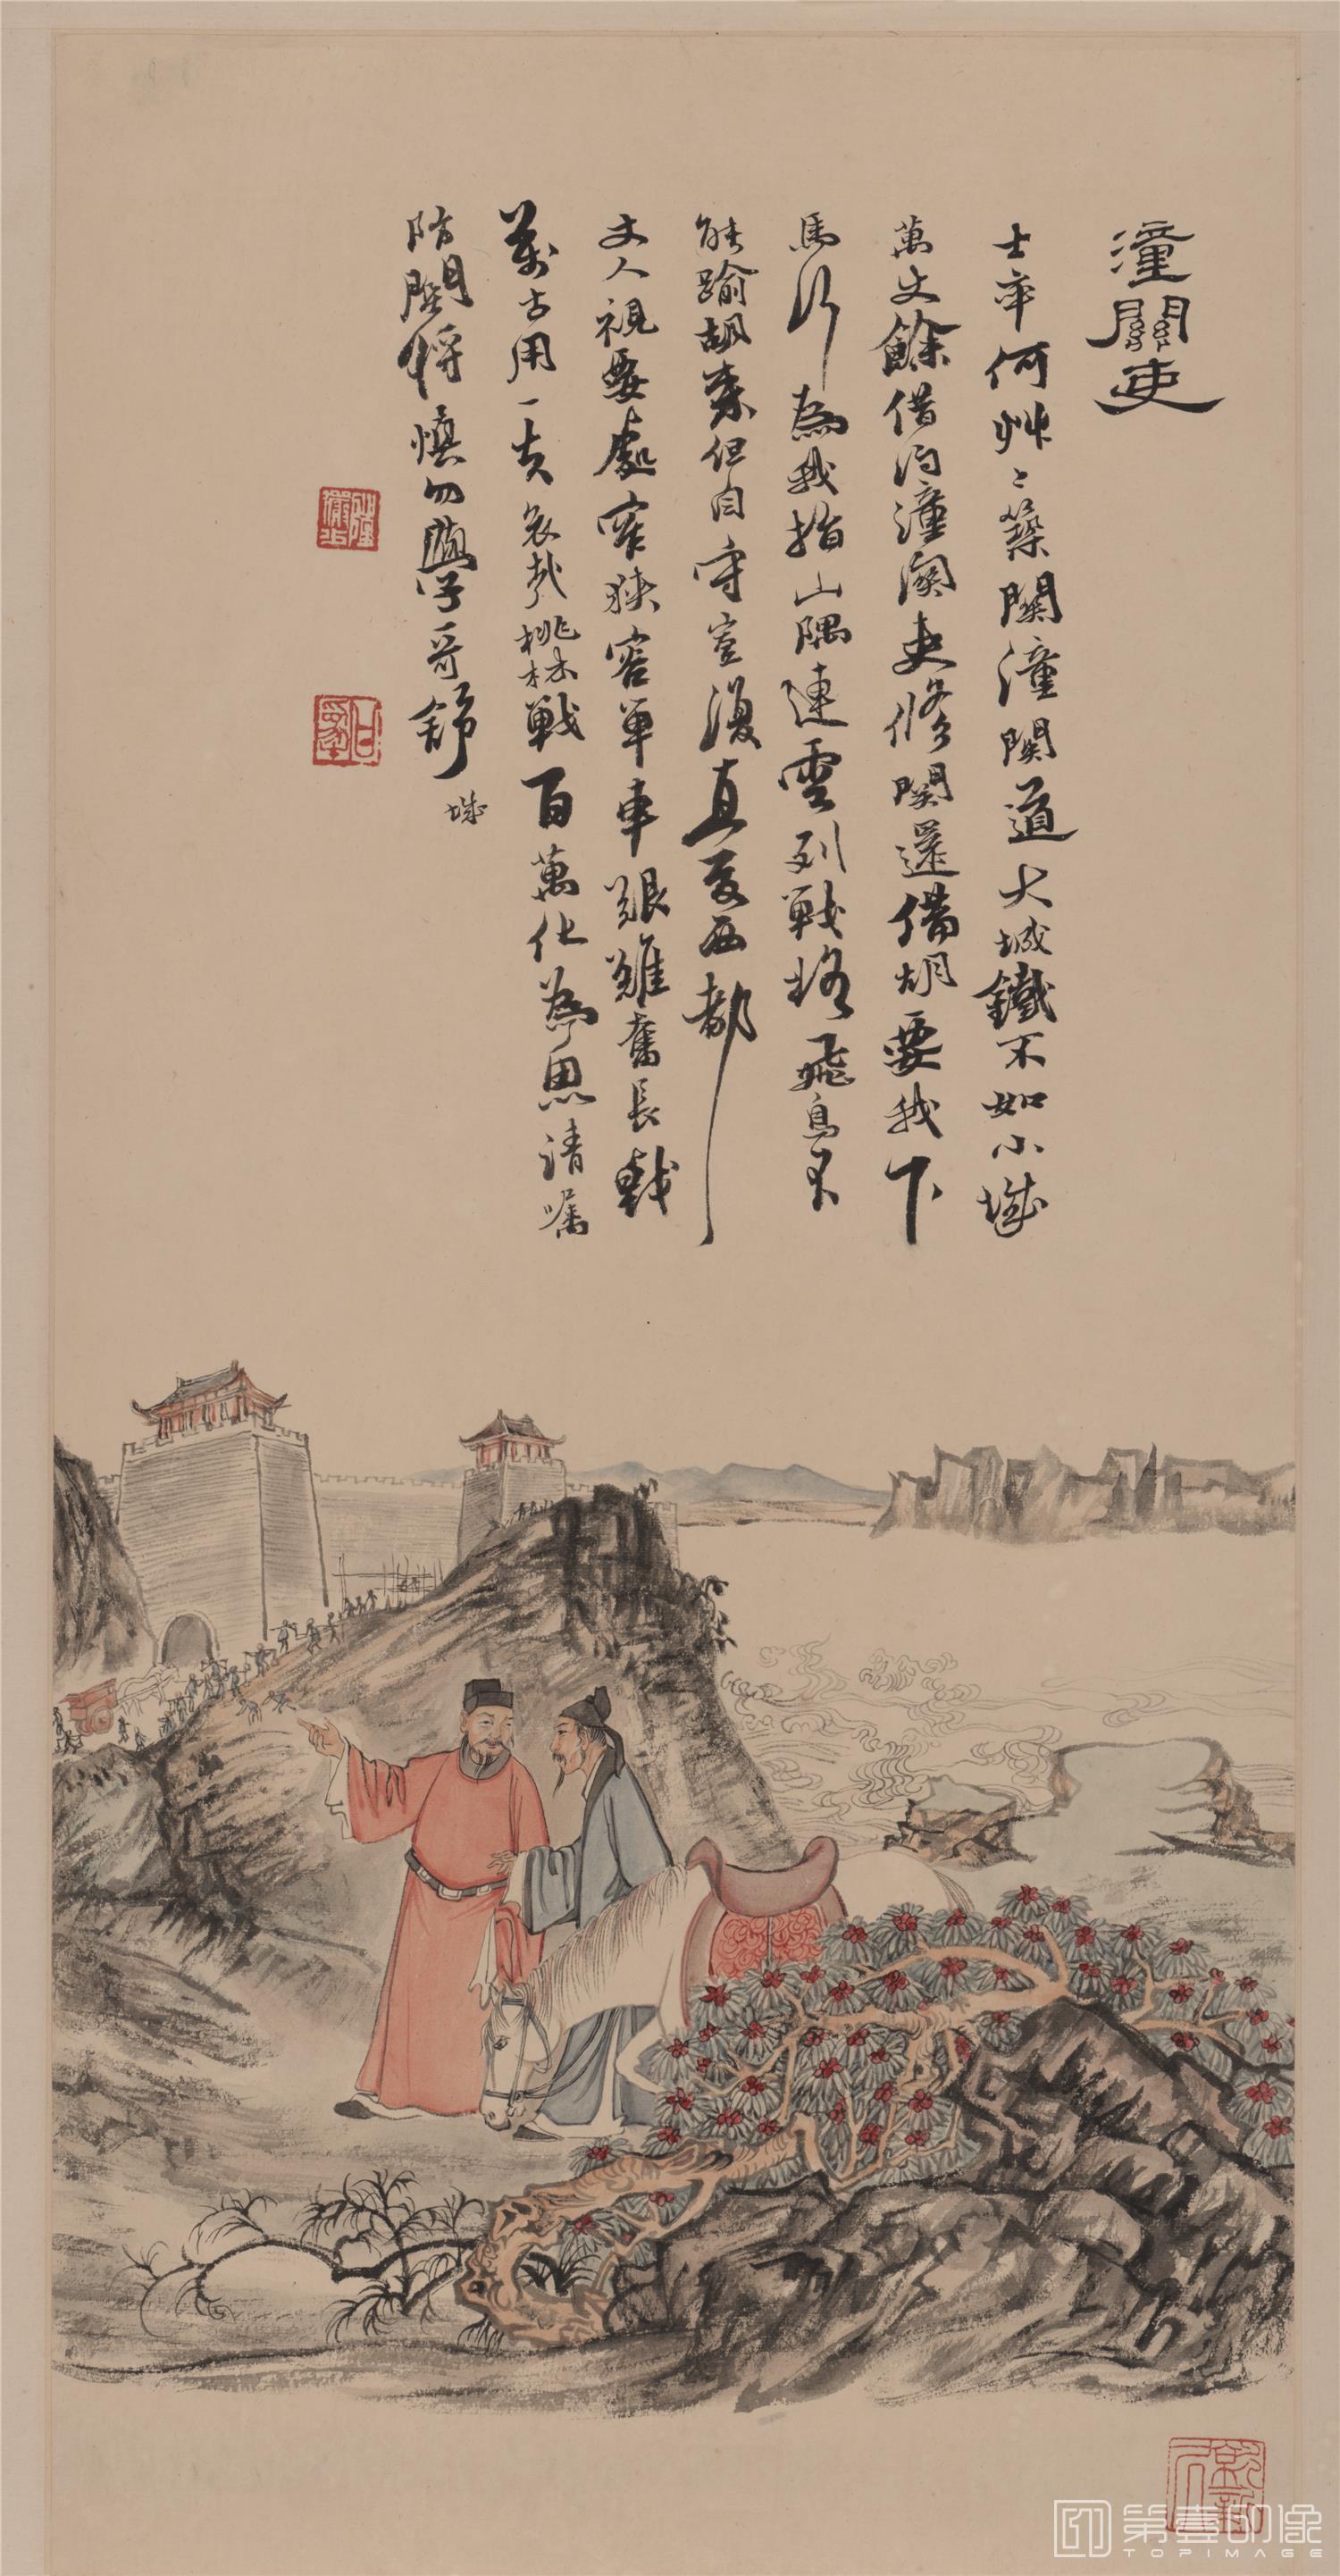 潼關吏
士卒何艸〻築關潼關道大城鐵不如小城
萬丈餘借問潼關吏修關還備胡要我下
馬行為我指山隅連雲列戰格飛鳥不
能踰胡來但自守豈復直憂西都
丈人視要處窄狹容單車艱難奮長戟
萬古用一夫哀哉桃林戰百萬化為魚請囑
防關將慎勿學哥舒
第壹印像
TOPIMAGE